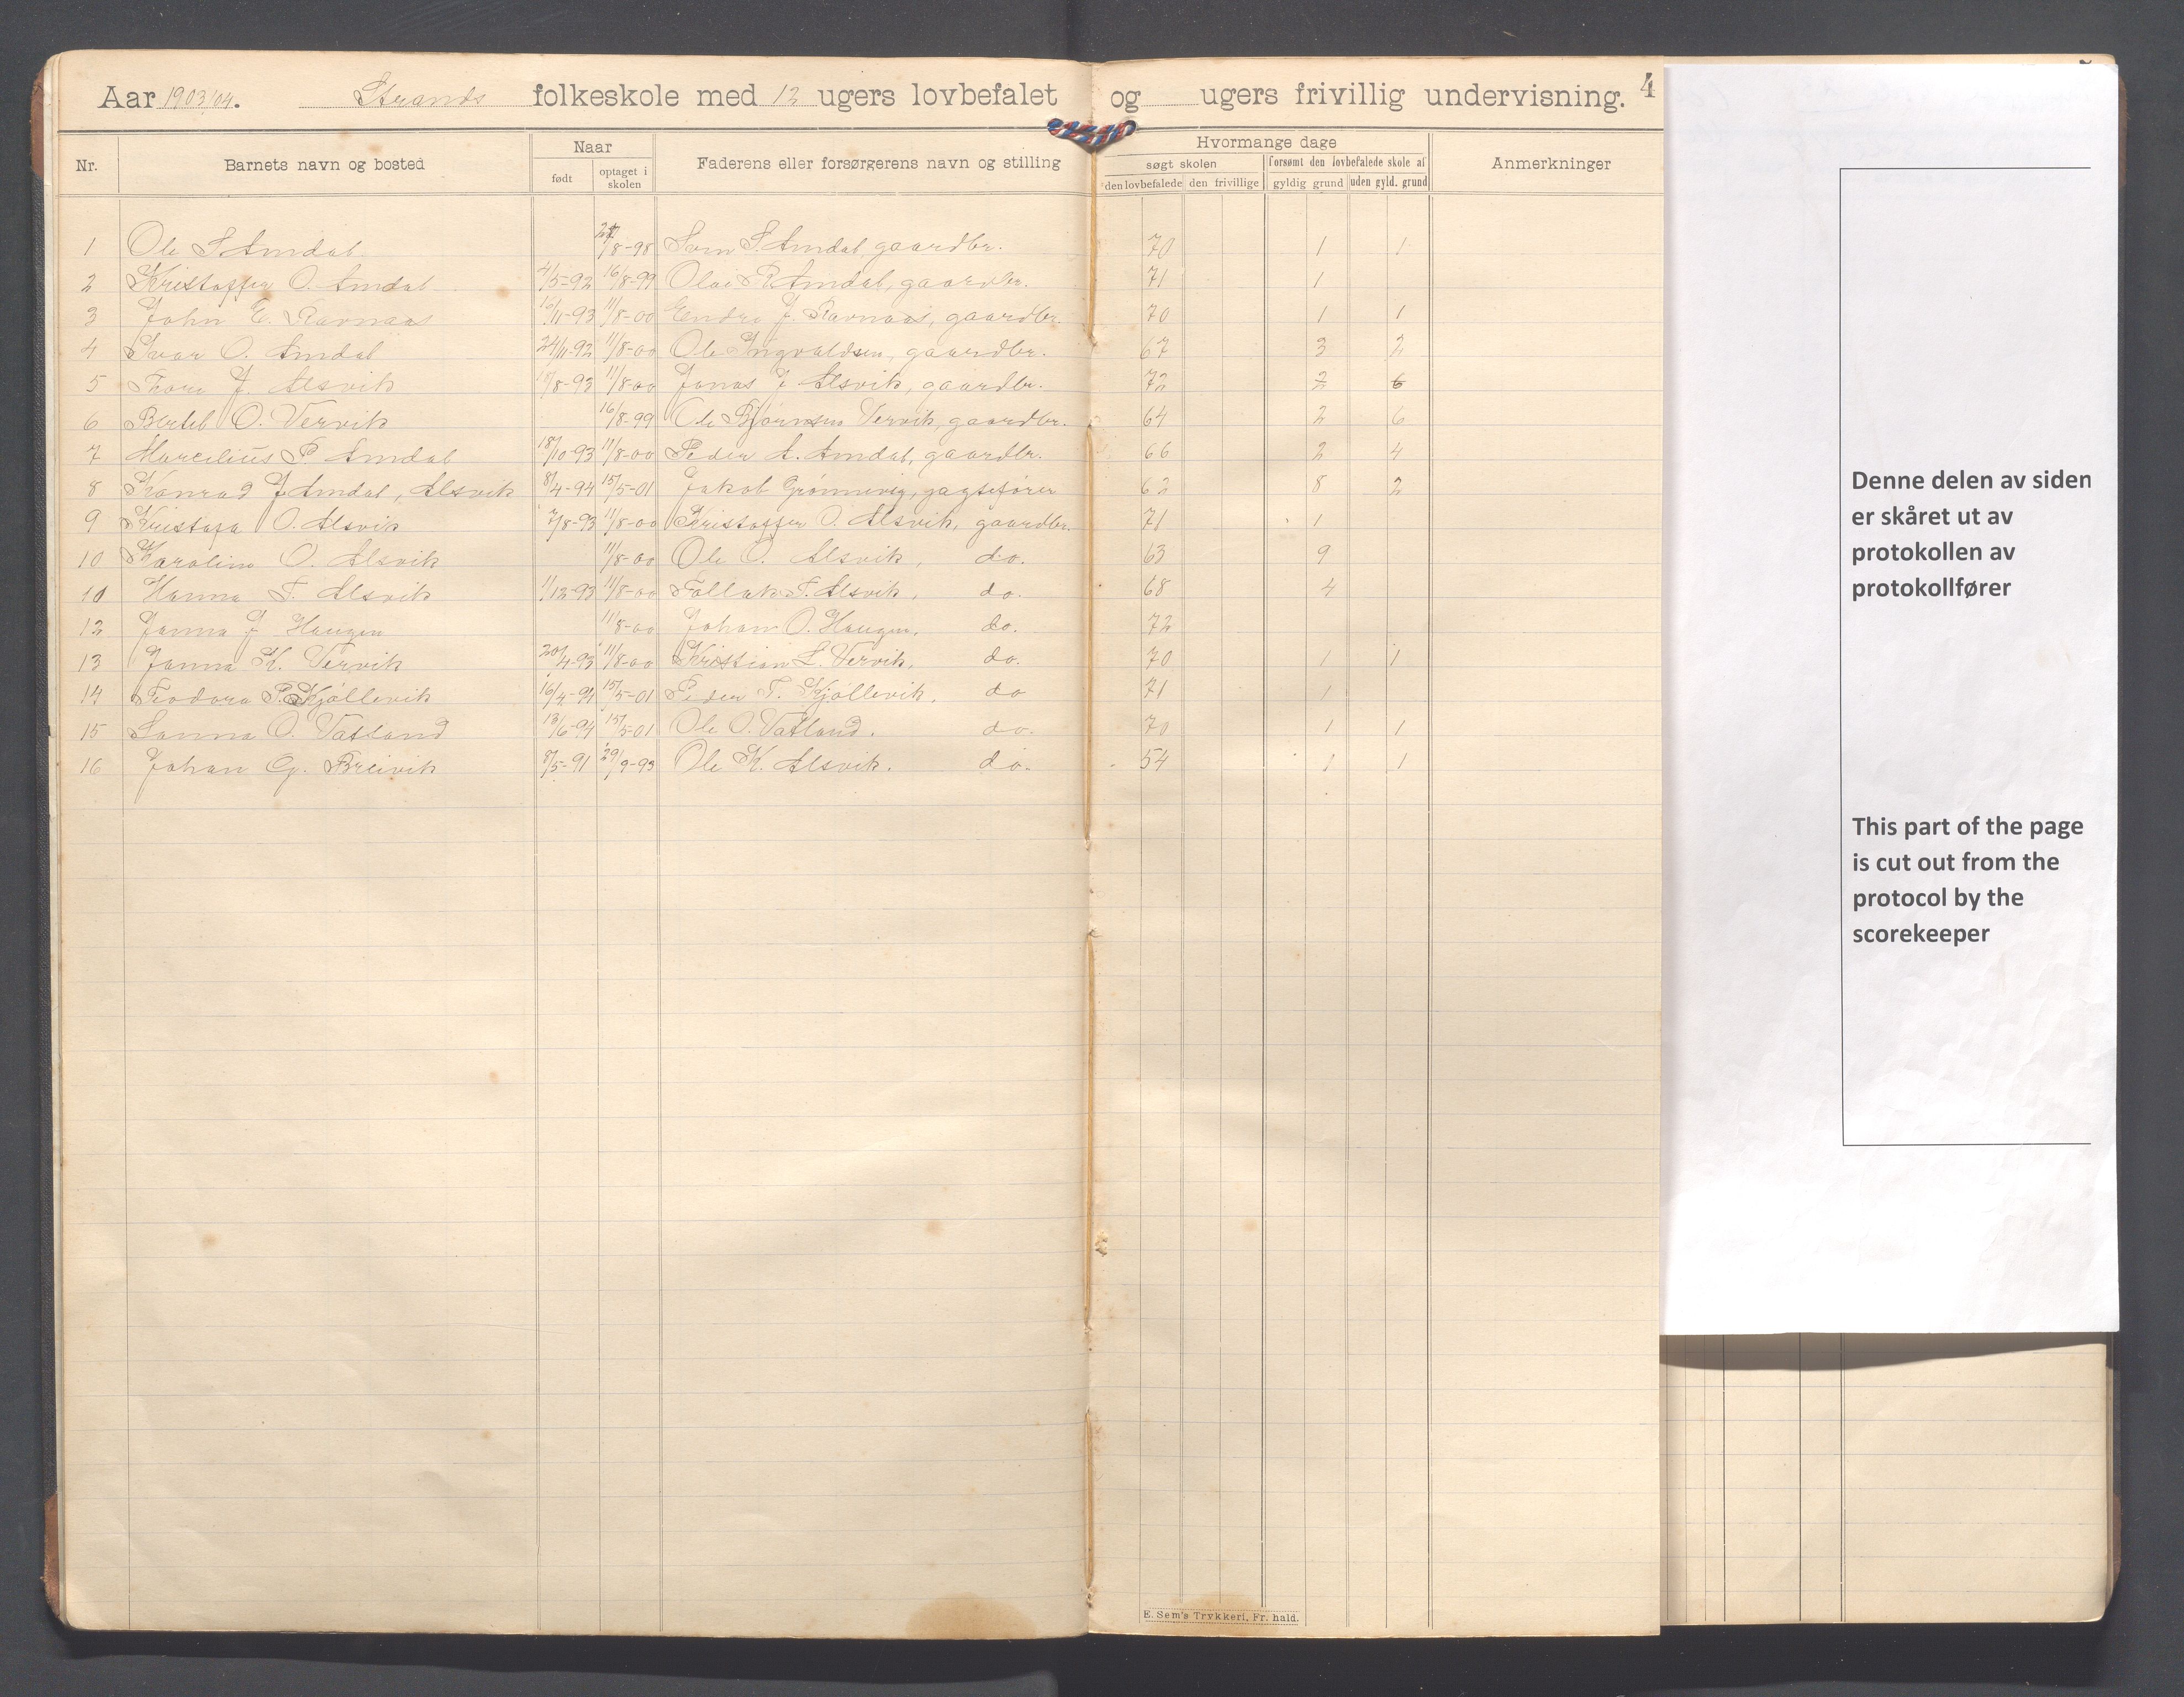 Aar 1903/04. Strands folkeskole med 12 ugers lovbefalet og ugers frivillig undervisning. 4
Nr. Barnets navn og bosted Naar født optaget i skolen Faderens eller forsørgerens navn og stilling Hvormange dage søgt skolen den lovbefalede den frivillige forsømt den lovbefalede skole af gyldig grund uden gyld. grund Anmerkninger
1 Ole S. Amdal 27/8-98 S. Amdal, gaardbr. 70 1 1
2 Kristoffer O. Amdal 4/5-92 16/8-99 Olai R. Amdal, gaardbr. 71 1
3 John E. Ravnaas 16/11-93 11/8-00 Endre J. Ravnaas, gaardbr. 70 1 1
4 Ivar O. Amdal 24/11-92 11/8-00 Ole Ingvaldsen, gaardbr. 67 3 2
5 Thore J. Alsvik 18/8-93 11/8-00 Jonas J. Alsvik, gaardbr. 72 2 6
6 Bertel O. Vervik 16/8-99 Ole Bjørnsen Vervik, gaardbr. 64 2 6
7 Marcelius P. Amdal 18/10-93 11/8-00 Peder A. Amdal, gaardbr. 66 2 4
8 Konrad J Amdal, Alsvik 8/4-94 15/5-01 Jakob Grønnevig, jagtefører 62 8 2
9 Kristofa O. Alsvik 7/8-93 11/8-00 Kristoffer O. Alsvik, gaardbr. 71 1
10 Karoline O. Alsvik 11/8-00 Ole O. Alsvik, do. 63 9
10 Hanna T. Alsvik 1/12-93 11/8-00 Tollak T. Alsvik, do. 68 4
12 Janna J Haugen 11/8-00 Johan O. Haugen, do. 72
13 Janna K. Vervik 20/4-93 11/8-00 Kristian L. Vervik, do. 70 1 1
14 Teodora P. Kjøllevik 16/4-94 15/5-01 Peder T. Kjøllevik, do 71 1
15 Sanna O. Vatland 13/6-94 15/5-01 Ole O. Vatland. do. 70 1 1
16 Johan G. Breivik 8/5-91 29/9-93 Ole K. Alsvik. do. 54 1 1
E. Sem's Trykkeri, Fr. hald.
Denne delen av siden
er skåret ut av
protokollen av
protokollfører
This part of the page
is cut out from the
protocol by the
scorekeeper